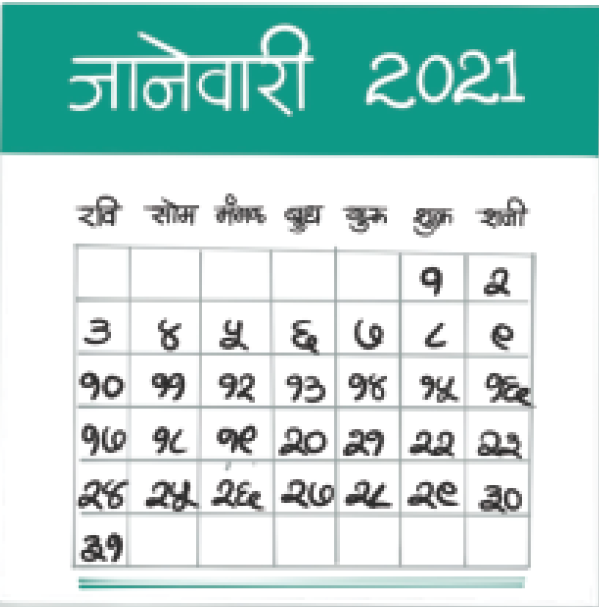 जानेवारी 2021
रवि सोम मंगळ बुध गुरू शुक्र शनी
१ २
३ ४ ५ ६ ७ ८ ९
१० ११ १२ १३ १४ १५ १६
१७ १८ १९ २० २१ २२ २३
२४ २५ २६ २७ २८ २९ ३०
३१